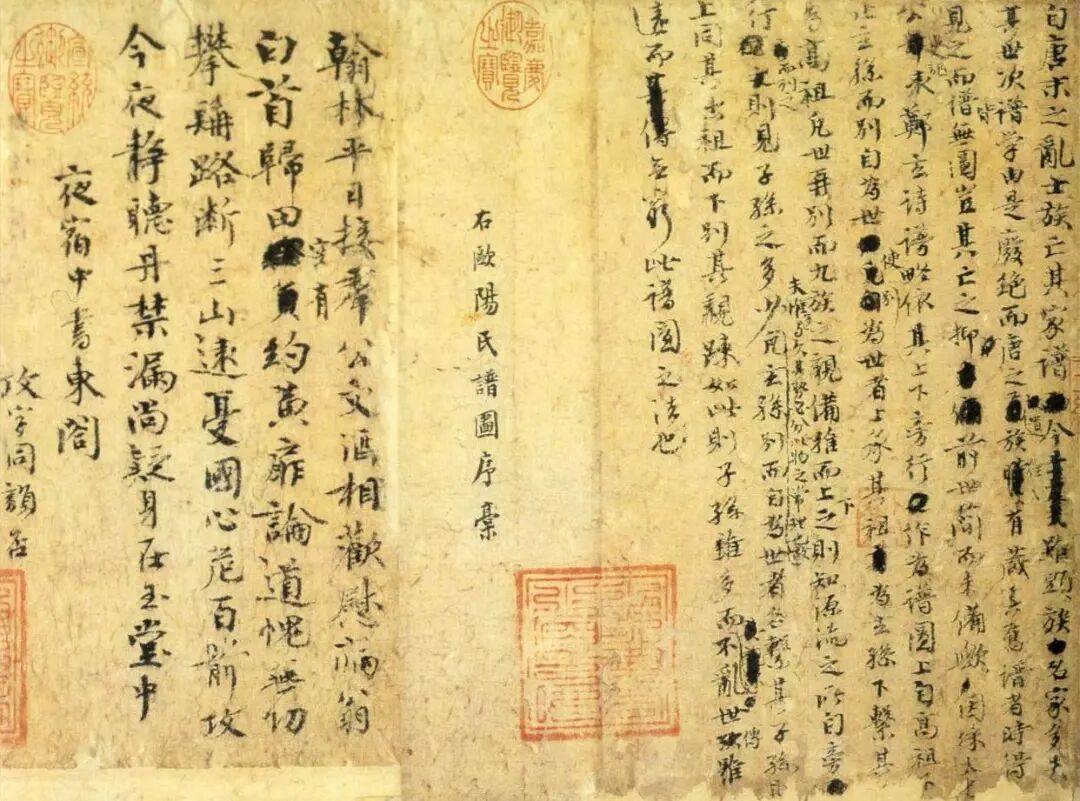 嘉慶御覽之寶
宣統御覽之寶
自唐末之亂士族亡其家譜今雖顯族名家多失
其世次譜学由是廢絶而唐之遺族往往有藏其舊譜者時得
見之而譜皆無圖豈其亡之抑前世簡而未備歟因採太史
公史記表鄭玄詩譜略依其上下旁行作為譜圖上自高祖下
止玄孫而別自為世使別為世者上承其祖為玄孫下繫其
孫為高祖凡世再別而九族之親備推而上下之則知源流之所自旁
行而列之則見子孫之多少夫惟多與久其勢必分此物之常理也凡玄孫別而自為世者各繫其子孫則
上同其出祖而下別其親疎如此則子孫雖多而不亂世傳雖
遠而無窮此譜圖之法也
右歐陽氏譜圖序稾
翰林平日接羣公文酒相歡慰病翁
白首歸田空有約黄扉論道愧無功
攀髯路斷三山遠憂國心危百箭攻
今夜静聽丹禁漏尚疑身在玉堂中
夜宿中書東閤
攻字同韻否